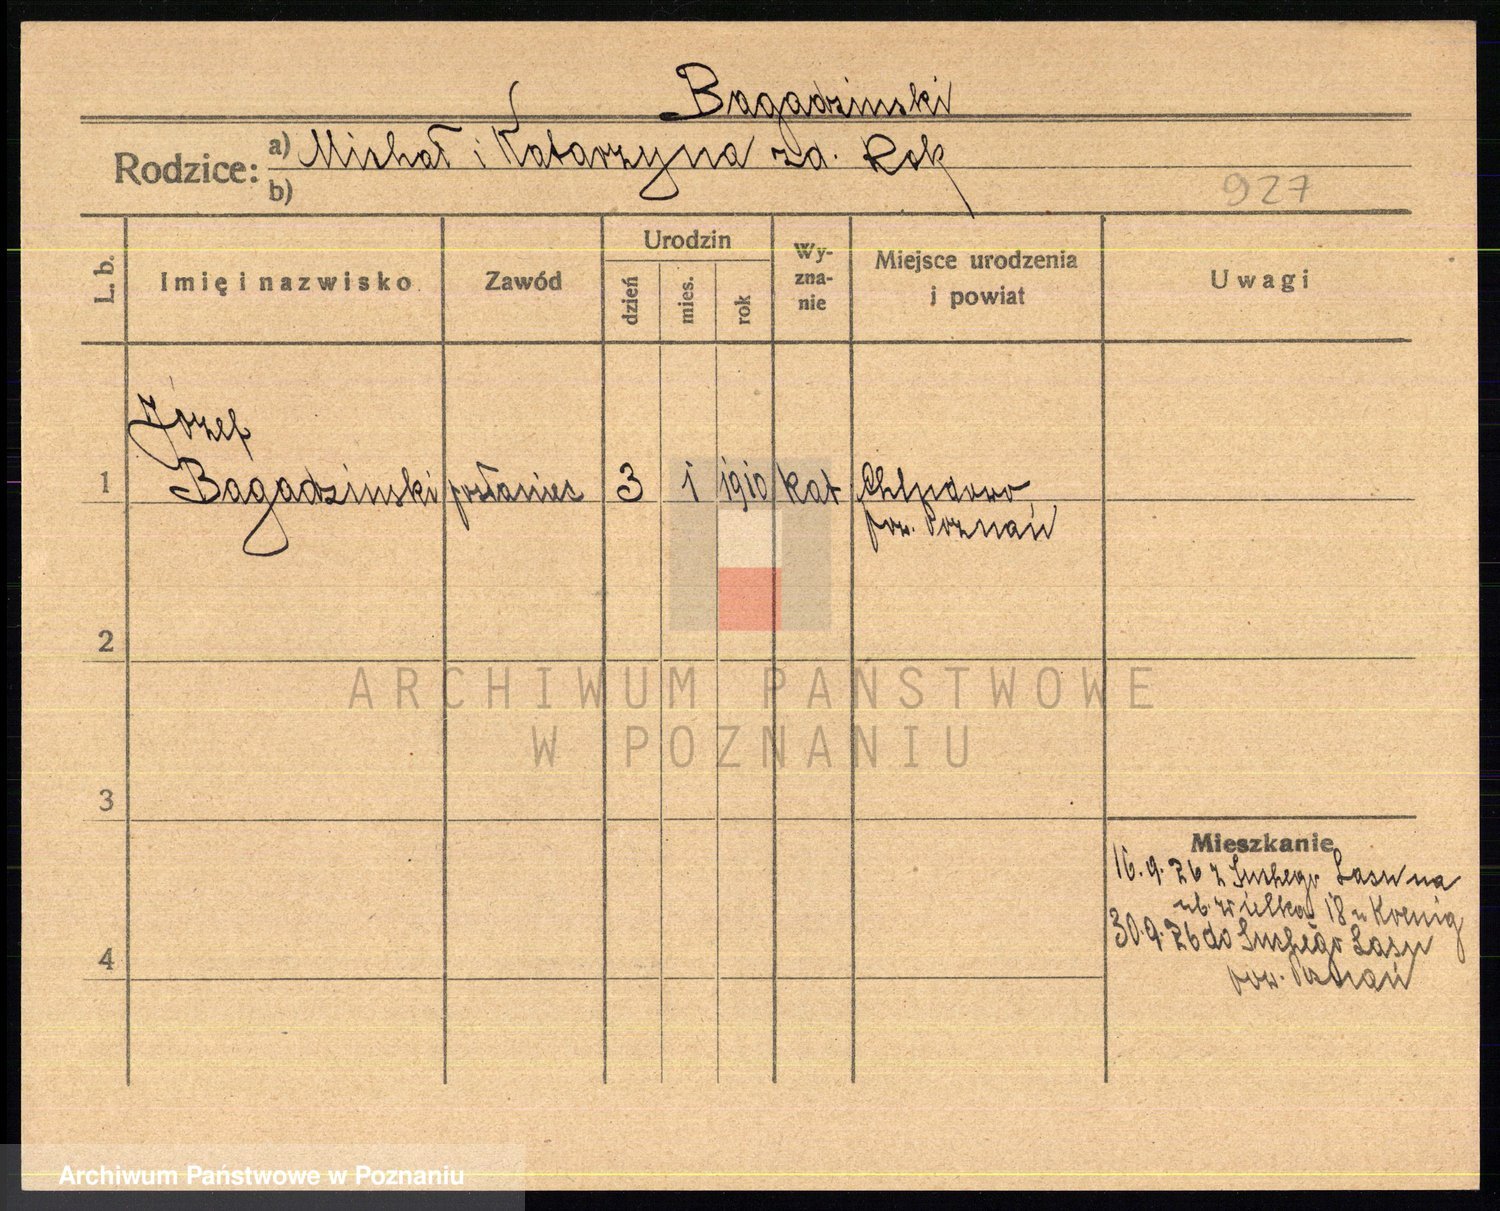 Bagadzinski
Rodzice: a) Michał i Katarzyna zd. Rok
b)
927
L. b.
Imię i nazwisko
Zawód
Urodzin
dzień
mies.
rok
Wy-
zna-
nie
Miejsce urodzenia
i powiat
Uwagi
Józef
1 Bagadzinski posłaniec 3 1 1910 kat Chludowo
pow. Poznań
2
ARCHIWUM PAŃSTWOWE
W POZNANIU
3
Mieszkanie
16.9.26 z Suchego Lasu na
ul. Wielka 18 u Koenig
30.9.26 do Suchego Lasu
pow. Poznań
4
Archiwum Państwowe w Poznaniu